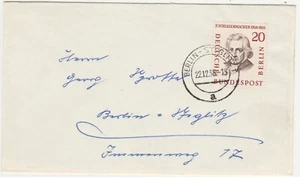 F. SCHLEIERMACHER 1768-1834
20
DEUTSCHE
BUNDESPOST
BERLIN
BERLIN-
22.12.58
a
Herrn
Georg
Berlin - Steglitz
Immenweg 17